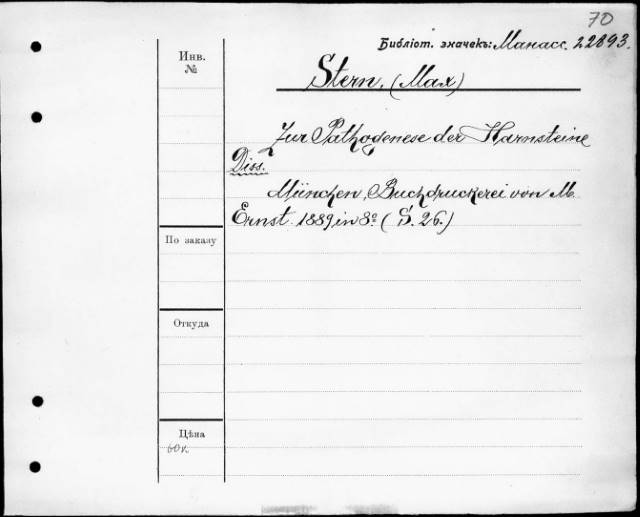 70
Библіот. значекъ: Манасс. 22893.
Инв.
№
Stern, (Max)
Zur Pathogenese der Harnsteine
Diss.
München, Buchdruckerei von M.
Ernst. 1889 in 8º (S. 26.)
По заказу
Откуда
Цѣна
60к.